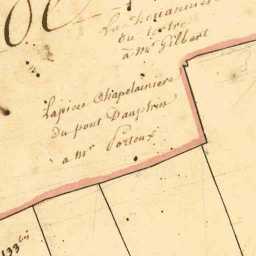 du tertre
à mr Gilbert
Lapiece Chapelainiere
du pont Dauphin
a mr Porteux
133